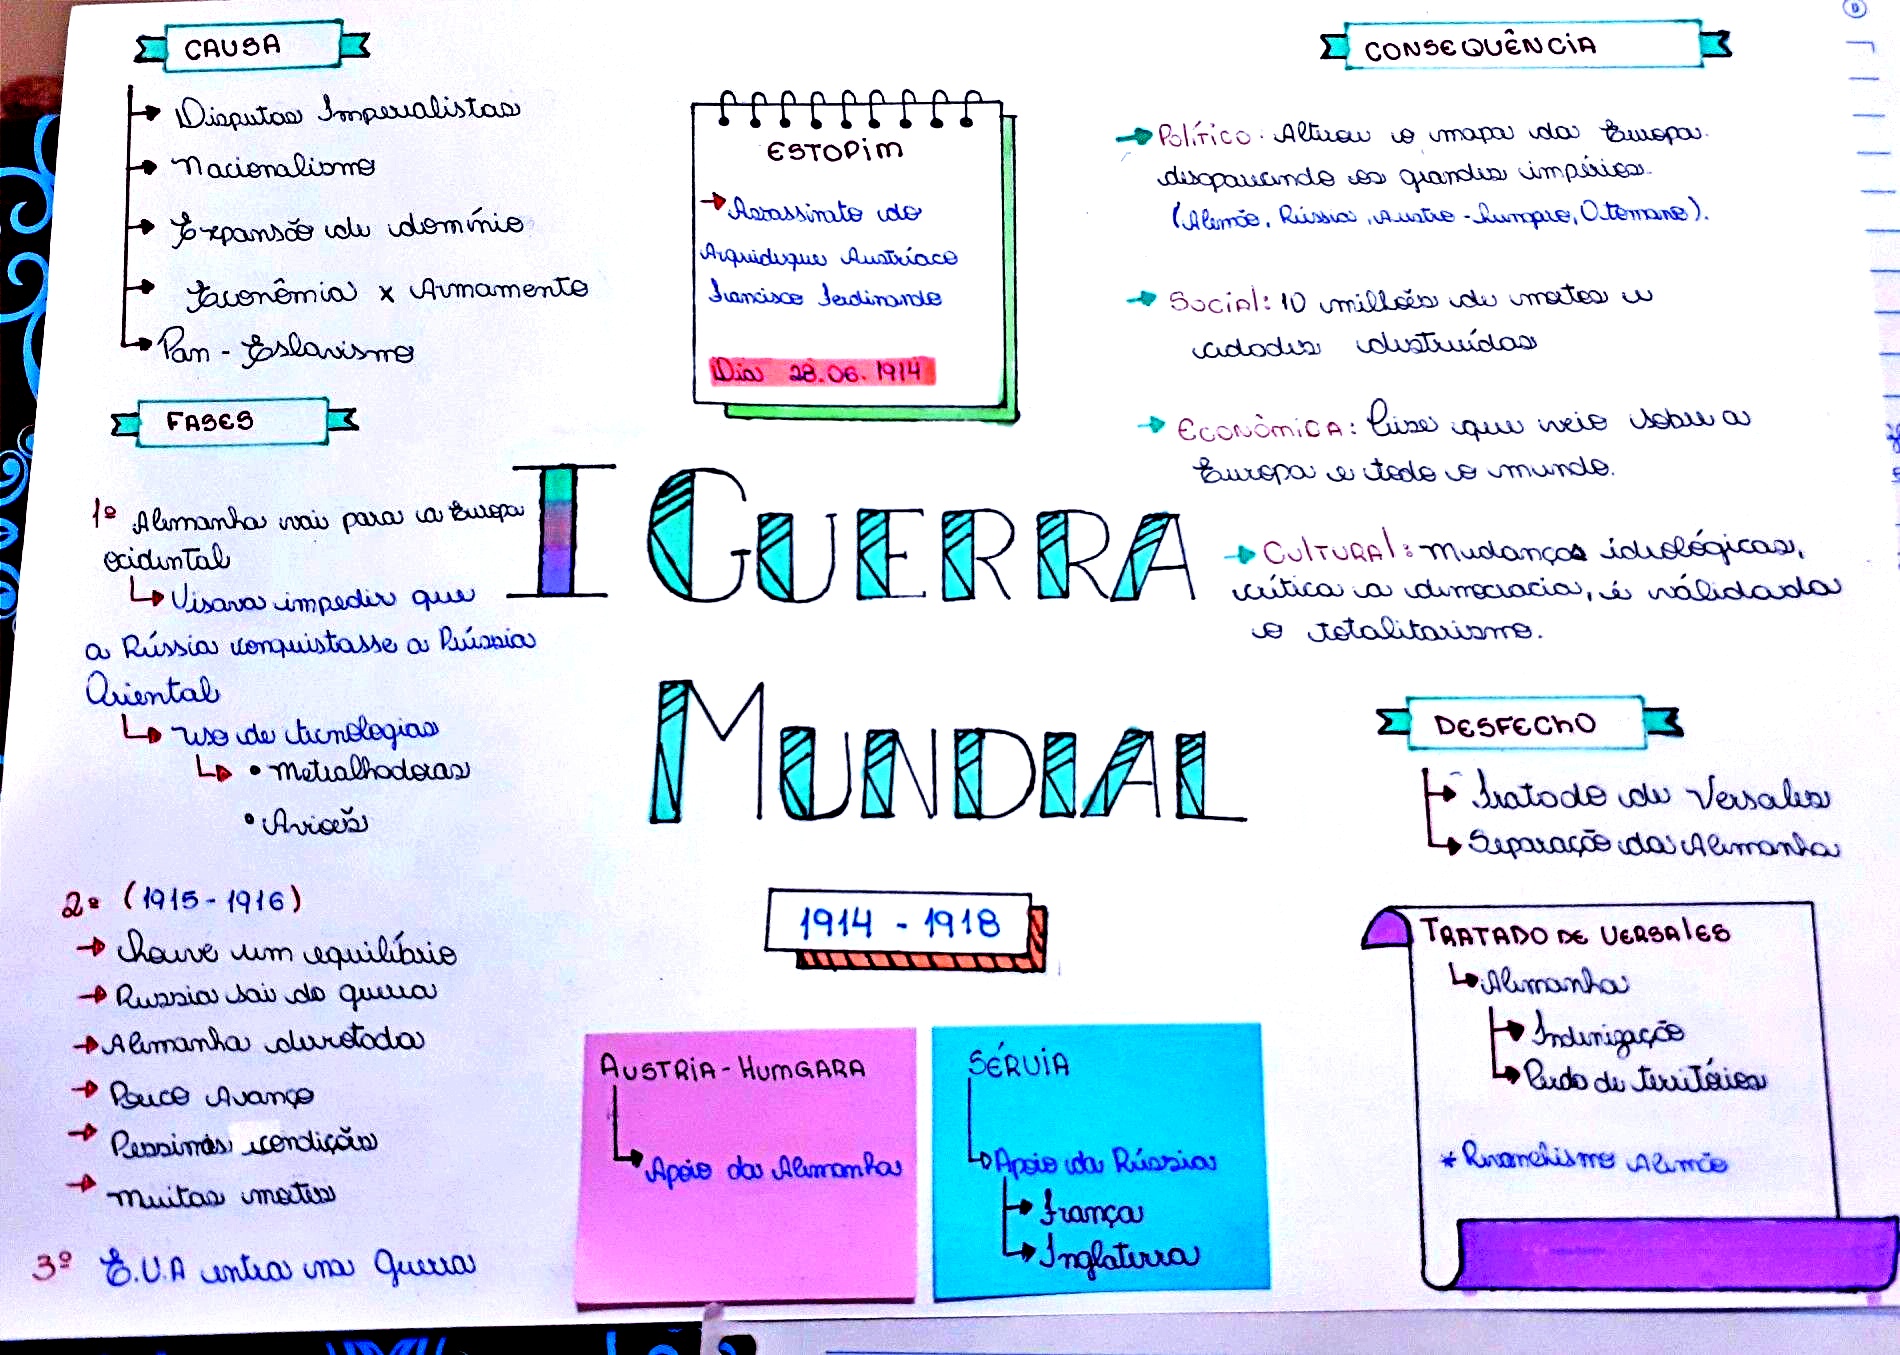 CAUSA
Disputas Imperialistas
Nacionalismo
Expansão de domínio
Econômia x Armamento
Pan - Eslavismo
FASES
1º Alemanha vai para a Europa
ocidental
Visava impedir que
a Rússia conquistasse a Rússia
Oriental
Uso de tecnologias
• Metralhadoras
• Aviões
2º (1915 - 1916)
Houve um equilíbrio
Russia sai da guerra
Alemanha derrotada
Pouco Avanço
Pessimas condições
Muitas mortes
3º E.U.A entra na Guerra
ESTOPIM
Assassinato do
Arquiduque Austríaco
Francisco Ferdinando
Dia 28.06.1914
I GUERRA
MUNDIAL
1914 - 1918
AUSTRIA - HUMGARA
Apoio da Alemanha
SÉRVIA
Apoio da Rússia
França
Inglaterra
CONSEQUÊNCIA
Político. Alterou o mapa da Europa.
desaparecendo os grandes impérios.
(Alemão, Rússia, Austro - humgro, Otomano).
Social: 10 milhões de mortos e
cidades destruídas
Econômica: Crise que veio sobre a
Europa e todo o mundo.
Cultural: Mudanças ideológicas,
crítica a democracia, é válidada
o totalitarismo.
DESFECHO
Tratado de Versales
Separação da Alemanha
TRATADO DE VERSALES
Alemanha
Indenização
Perda de territórios
* Revanchismo Alemão